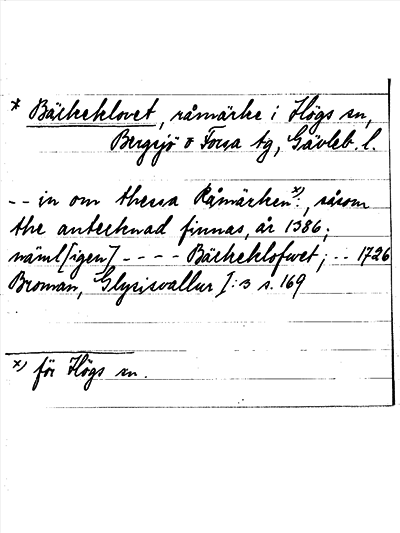 * Bäckeklovet, råmärke i Högs sn,
Bergsjö o Forsa tg, Gävleb. l.
-- in om thessa Råmärken x): , såsom
the antecknad finnas, år 1386;
näml[igen] - - - - Bäckeklofwet; -- 1726
Broman, Glysisvallur I: 3 s. 169
x) för Högs sn.